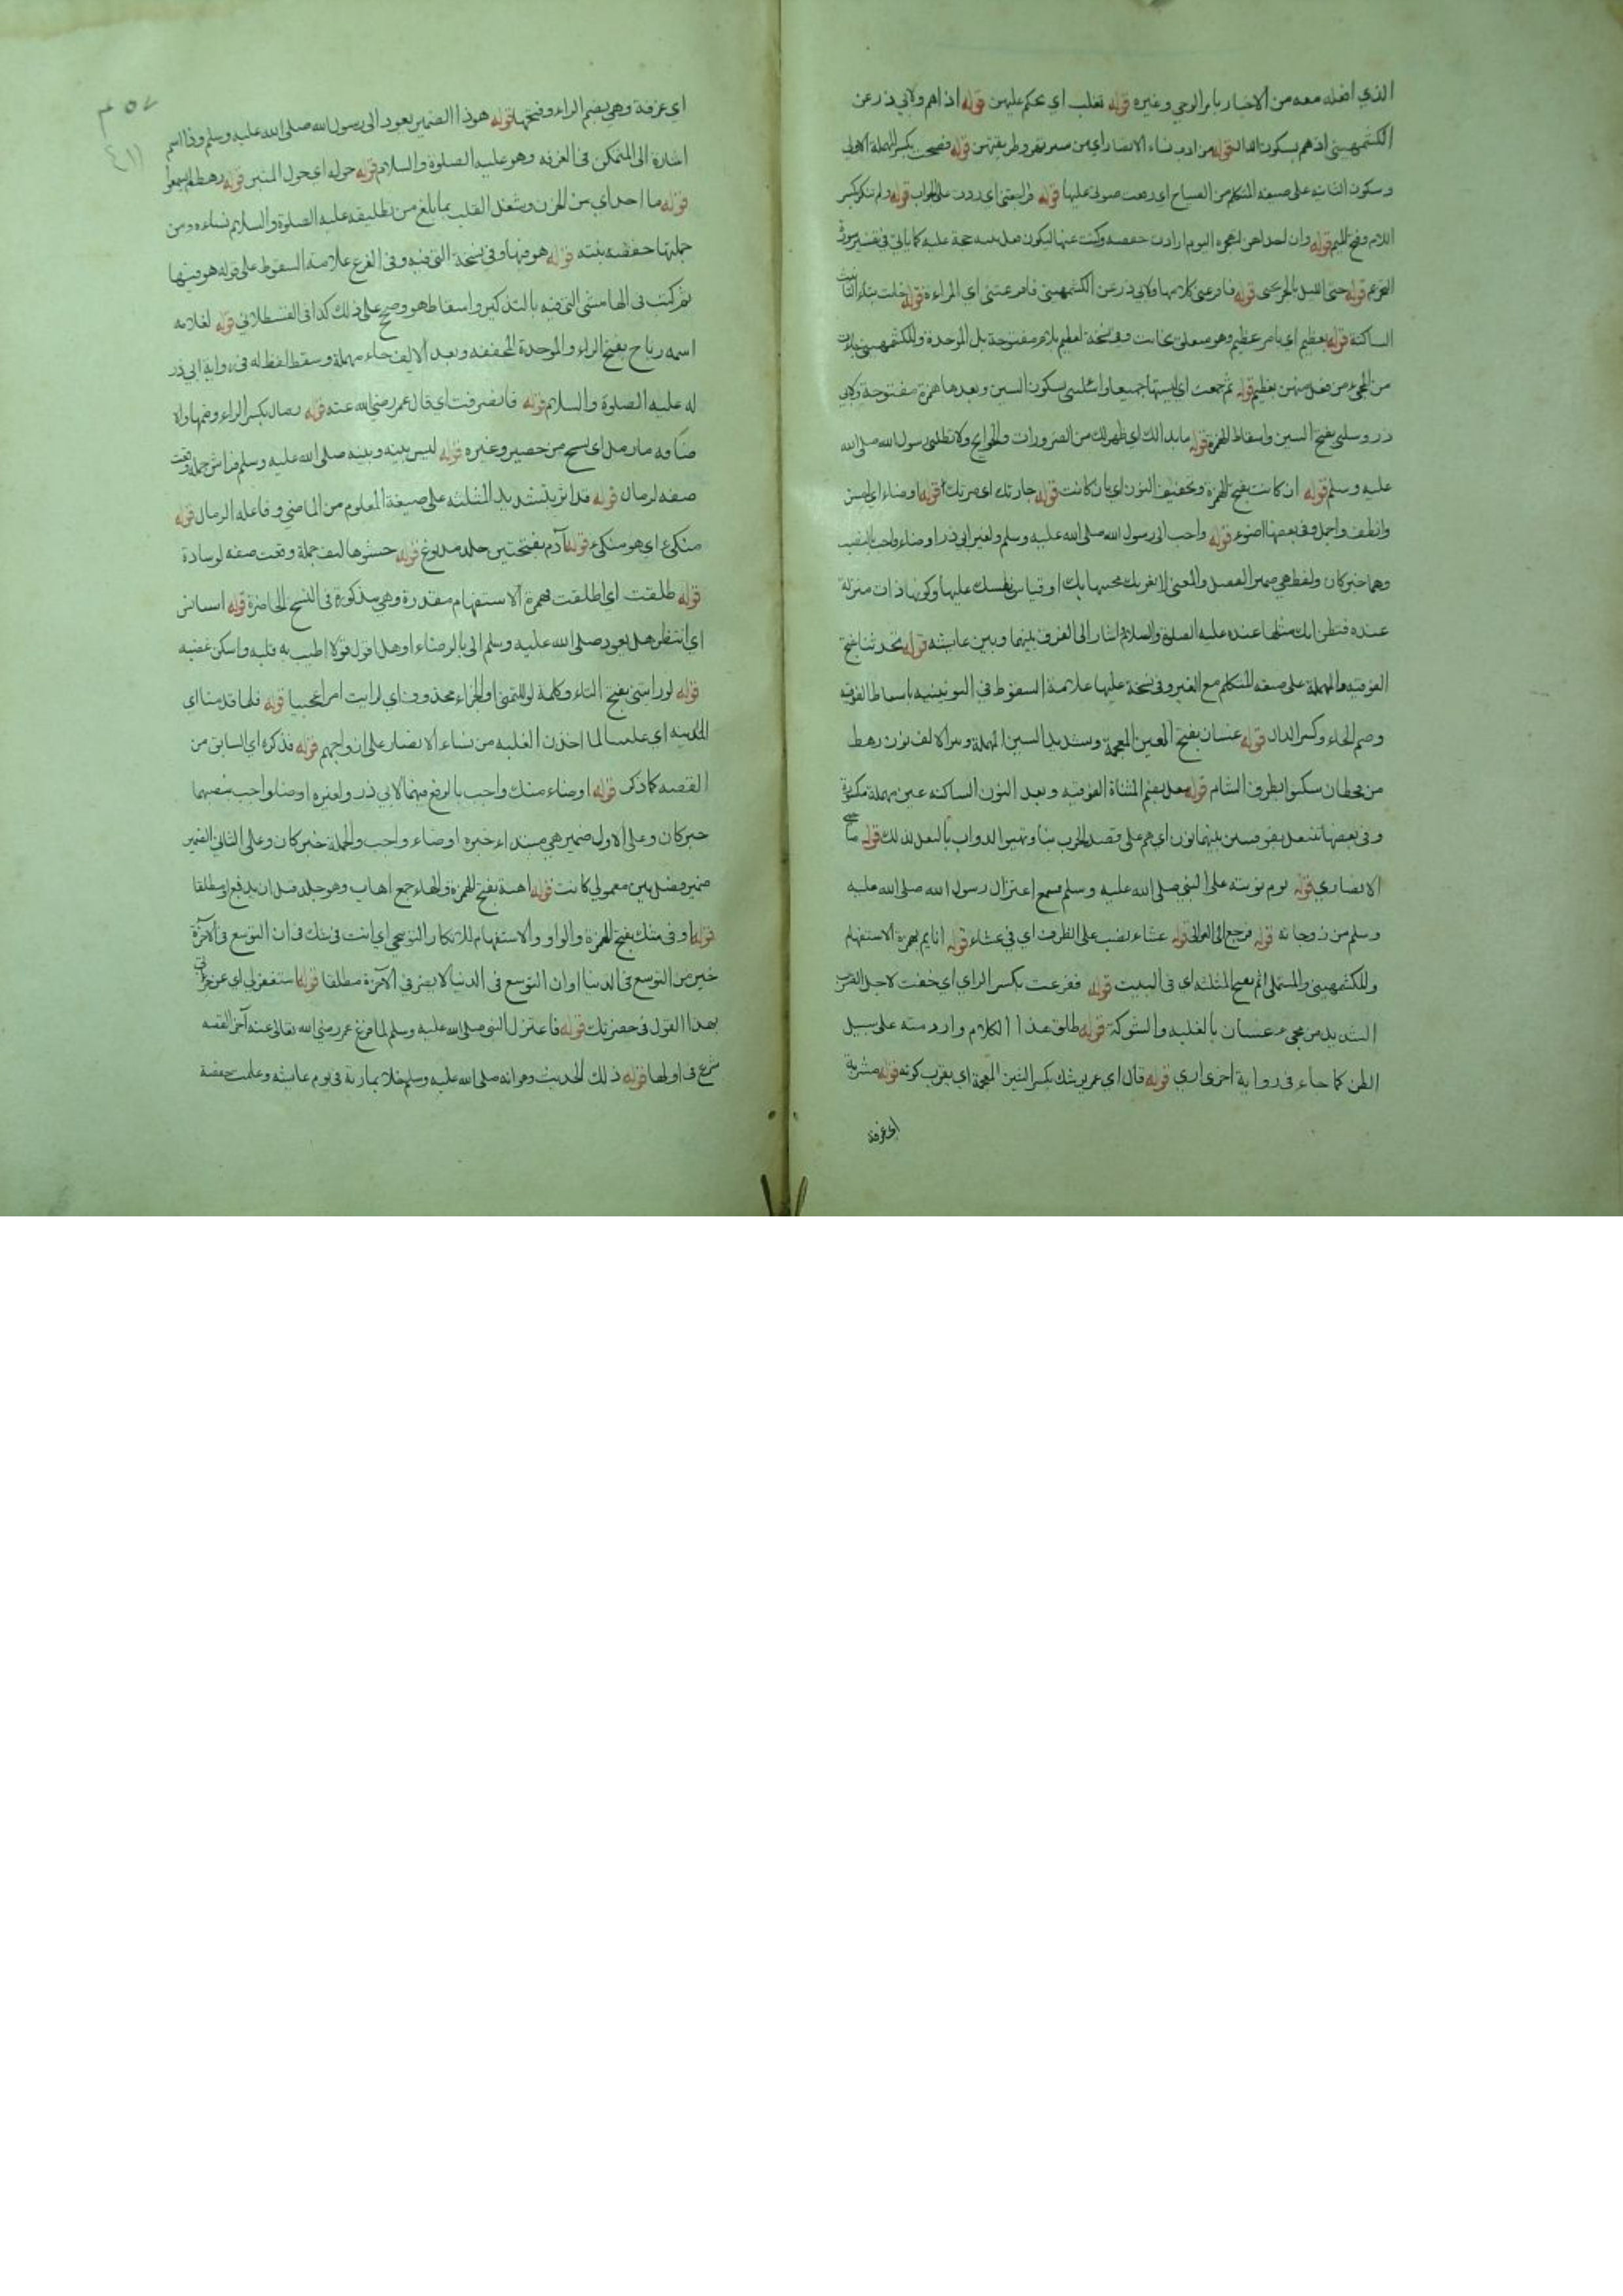 الذي اضله معه من الاخبار بامر الوحي وغيره قوله تغلب اي نحكم عليهن قوله اذا هم ولابي ذر عن
الكشميهني اذ هم بسكون الذال قوله من ادب نساء الانصار اي من سيرتهن وطريقتهن قوله فصحت بكسر المهملة الاولى
وسكون الثانيه على صيغه المتكلم من الصياح اي رفعت صوتي عليها قوله فراجعتني اي ردت على الجواب قوله ولم تنكر بكسر
اللام وفتح الميم قوله وان احداهن لتهجره اليوم ارادت حفصه وكنت عنها ليكون فعل بنته حجة عليه كما ياتي في تفسير سورة
التحريم قوله حتى الليل بالجر حتى قوله فافزعني كلامها ولابي ذر عن الكشميهني فافزعتني اي المراءة قوله خابت بتاء التانيث
الساكنة قوله بعظيم اي بامر عظيم وهو متعلق بخابت وفي نسخة لعظيم بلام مفتوحة بدل الموحدة وللكشميهني جاءت
من المجيء من فعل منهن بعظيم قوله ثم جمعت اي لبستها جميعا واسئلني بسكون السين وبعدها همزة مفتوحة ولابي
ذر وسلني بفتح السين واسقاط الهمزة قوله ما بدا لك اي ظهر لك من الضرورات والحوايج ولا تطلبي رسول الله صلى الله
عليه وسلم قوله ان كانت بفتح الهمزة وتخفيف النون اي بان كانت قوله جارتك اي ضرتك قوله اوضاء اي احسن
وانظف واجمل وفي بعضها اضوء قوله واحب الى رسول الله صلى الله عليه وسلم ولغير ابي ذر اوضاء واحب بالنصب
وهما خبر كان ولفظ هي ضمير الفصل والمعنى لا تغررك بحبها بك او قياس نفسك عليها وكونها ذات منزلة
عنده فتظن انك مثلها عنده عليه الصلوة والسلام اشار الى الفرق بينهما وبين عايشه قوله تحدثنا بفتح
الفوقيه والمهملة على صيغه المتكلم مع الغير وفي نسخة عليها علامة السقوط في اليونينيه باسقاط الفوقيه
وضم الحاء وكسر الدال قوله غسان بفتح الغين المعجمة وتشديد السين المهملة وبعد الالف نون رهط
من قحطان سكنوا بطرف الشام قوله تنعل بضم المثناة الفوقيه وبعد النون الساكنه عين مهملة مكسورة
وفي بعضها تنتعل بفوقيتين بينهما نون اي هم على قصد الحرب بنا وتهيوا الدواب بالنعل لذلك قوله
الانصاري قوله يوم نوبته على النبي صلى الله عليه وسلم فسمع اعتزال رسول الله صلى الله عليه
وسلم من زوجاته قوله فرجع الى العوالي قوله عشاء نصب على الظرف اي في عشاء قوله انايم بهمزة الاستفهام
وللكشميهني والمستملي اثم بفتح المثلثه اي في البيت قوله ففزعت بكسر الزاي اي خفت لاجل الضرب
الشديد من مجيء غسان بالغلبه والشوكة قوله طلق هذا الكلام وارد منه على سبيل
الظن كما جاء في رواية اخرى ارى قوله قال اي عمر يوشك بكسر الشين المعجمة اي يقرب كونه قوله مشربة
اي غرفة
٢٥٧
اي غرفة وهي بضم الراء وفتحها قوله هو ذا الضمير يعود الى رسول الله صلى الله عليه وسلم وذا اسم
اشارة الى المتمكن في الغرفه وهو عليه الصلوة والسلام قوله حوله اي حول المنبر قوله رهط
قوله ما اجد اي من الحزن وشغل القلب بما بلغ من تطليقه عليه الصلوة والسلام نساءه ومن
جملتها حفصه بنته قوله هو فيها وفي نسخة التي فيه وفي الفرع علامة السقوط على قوله هو فيها
ثم كتب في الهامش التي فيه بالتذكير واسقاط هو وصح على ذلك كذا في القسطلاني قوله لغلامه
اسمه رباح بفتح الراء والموحدة المخففه وبعد الالف حاء مهملة وسقط لفظ له في رواية ابي ذر
له عليه الصلوة والسلام قوله فانصرفت اي قال عمر رضي الله عنه قوله رمال بكسر الراء وضمها والا
ضافه ما رمل اي نسج من حصير وغيره قوله ليس بينه وبينه صلى الله عليه وسلم فراش جملة وقعت
صفه لرمال قوله قد اثر بتشديد المثلثه على صيغة المعلوم من الماضي وفاعله الرمال قوله
متكئ اي هو متكئ قوله آدم بفتحتين جلد مدبوغ قوله حشوها ليف جملة وقعت صفه لوسادة
قوله طلقت اي اطلقت فهمزة الاستفهام مقدرة وهي مذكورة في النسخ الحاضرة قوله استانس
اي انتظر هل يعود صلى الله عليه وسلم الى بالرضاء او هل اقول قولا اطيب به قلبه واسكن غضبه
قوله لو رايتني بفتح التاء وكلمة لو للتمني او الجزاء محذوف اي لرايت امرا عجيبا قوله فلما قدمنا اي
المدينه اي علمنا لما اخذن الغلبه من نساء الانصار على ازواجهم قوله فذكره اي السابق من
القصه كما ذكر قوله اوضاء منك واحب بالرفع فيهما لابي ذر ولغيره اوضا واحب بنصبهما
خبر كان وعلى الاول ضمير هي مبتداء خبره اوضاء واحب والجملة خبر كان وعلى الثاني الضمير
ضمير فصل بين معمولي كانت قوله اهبة بفتح الهمزة والهاء جمع اهاب وهو جلد قبل ان يدبغ او مطلقا
قوله او في شك بفتح الهمزة والواو والاستفهام للانكار التوبيخي اي انت في شك في ان التوسع في الآخرة
خير من التوسع في الدنيا او ان التوسع في الدنيا لا يضر في الآخرة مطلقا قوله استغفر لي اي عن جراتي
بهذا القول في حضرتك قوله فاعتزل النبي صلى الله عليه وسلم لما فرغ عمر رضي الله تعالى عنه آخر القصه
شرع في اولها قوله ذلك الحديث وهو انه صلى الله عليه وسلم خلا بمارية في يوم عايشه وعلمت حفصة